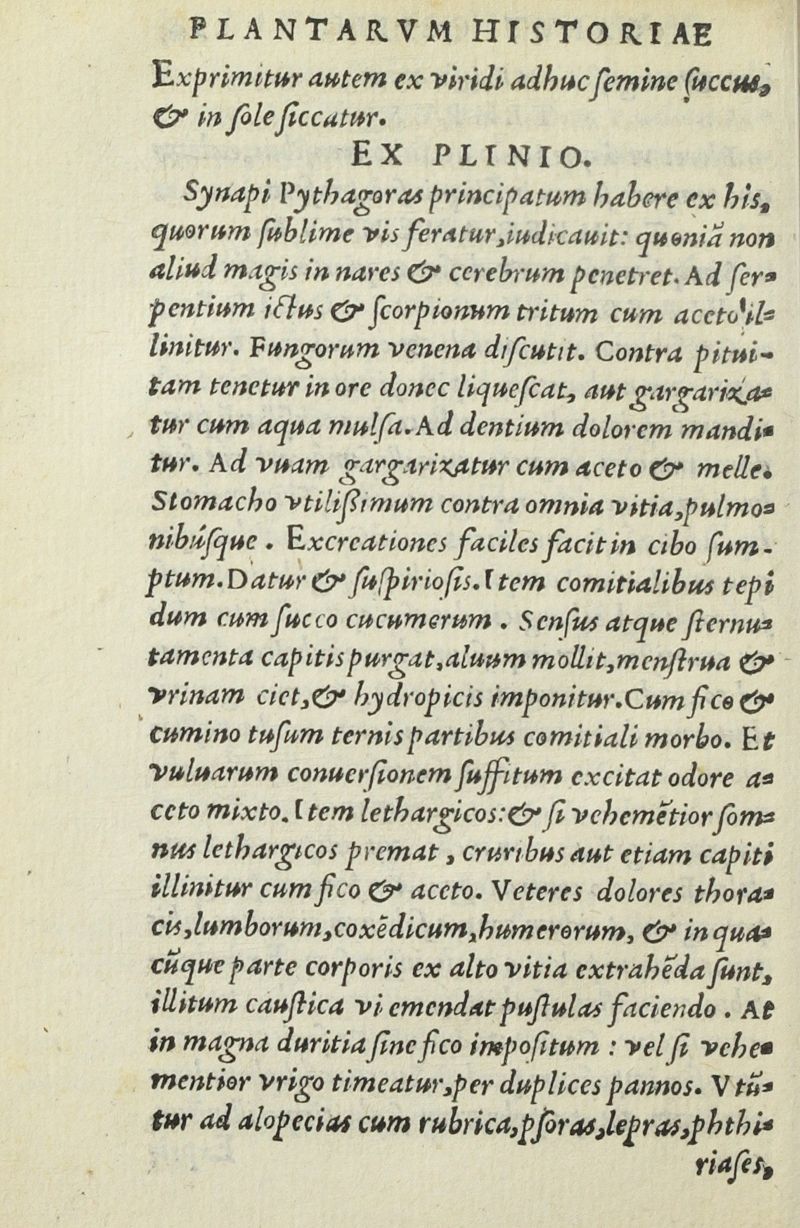 PLANTARVM HISTORIAE
Exprimitur autem ex viridi adhuc ſemine ſuccus,
& in ſole ſiccatur.
EX PLINIO.
Synapi Pythagoras principatum habere ex his,
quorum ſublime vis feratur, iudicauit: quoniã non
aliud magis in nares & cerebrum penetret. Ad ſer-
pentium ictus & ſcorpionum tritum cum aceto il-
linitur. Fungorum venena diſcutit. Contra pitui-
tam tenetur in ore donec liqueſcat, aut gargariza-
tur cum aqua mulſa. Ad dentium dolorem mandi-
tur. Ad vuam gargarizatur cum aceto & melle.
Stomacho vtiliſſimum contra omnia vitia, pulmo-
nibúſque. Excreationes faciles facit in cibo ſum-
ptum. Datur & ſuſpirioſis. Item comitialibus tepi
dum cum ſucco cucumerum. Senſus atque ſternu-
tamenta capitis purgat, aluum mollit, menſtrua &
vrinam ciet, & hydropicis imponitur. Cum fico &
cumino tuſum ternis partibus comitiali morbo. Et
vuluarum conuerſionem ſuffitum excitat odore a-
ceto mixto. Item lethargicos: & ſi vehemẽtior ſom-
nus lethargicos premat, cruribus aut etiam capiti
illinitur cum fico & aceto. Veteres dolores thora-
cis, lumborum, coxẽdicum, humerorum, & in qua-
cũque parte corporis ex alto vitia extrahẽda ſunt,
illitum cauſtica vi emendat puſtulas faciendo. At
in magna duritia ſine fico impoſitum: vel ſi vehe-
mentior vrigo timeatur, per duplices pannos. Vtũ-
tur ad alopecias cum rubrica, pſoras, lepras, phthi-
riaſes,